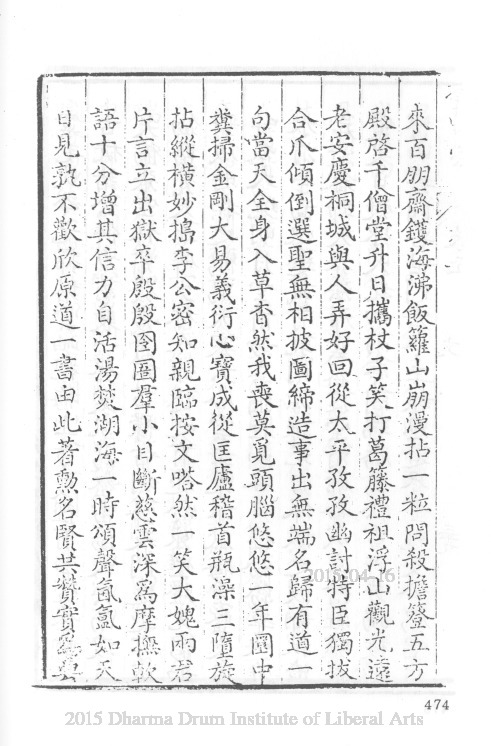 來百朋齋鑊海沸飯籮山崩漫拈一粒問殺擔簦五方
殿啓千僧堂升日攜杖子笑打葛籐禮祖浮山觀光遠
老安慶桐城與人弄好回從太平孜孜幽討持臣獨拔
合爪傾倒選聖無相披圖締造事出無端名歸有道一
向當天全身入草杳然我喪莫覓頭腦悠悠一年圜中
糞掃金剛大易義衍心寶成從匡廬稽首瓶澡三墮旋
拈縱橫妙搗李公密知親臨按文嗒然一笑大媿雨君
片言立出獄卒殷殷囹圄羣小目斷慈雲深爲摩撫軟
語十分增其信力自活湯焚湖海一時頌聲氤氳如天
日見孰不歡欣原道一書由此著勲名賢共贊實
474
2015/04/16
2015 Dharma Drum Institute of Liberal Arts